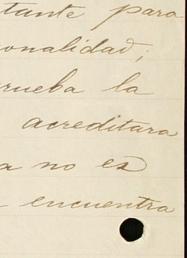 tante para
onalidad;
rueba la
acreditara
a no es
encuentra